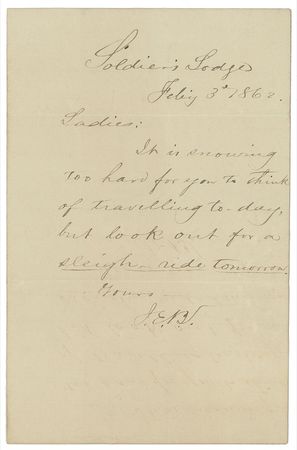 Soldier's Lodge
Feb'y 3d 1862.
Ladies:
It is snowing
too hard for you to think
of travelling to-day,
but look out for a
sleigh-ride tomorrow.
Yours